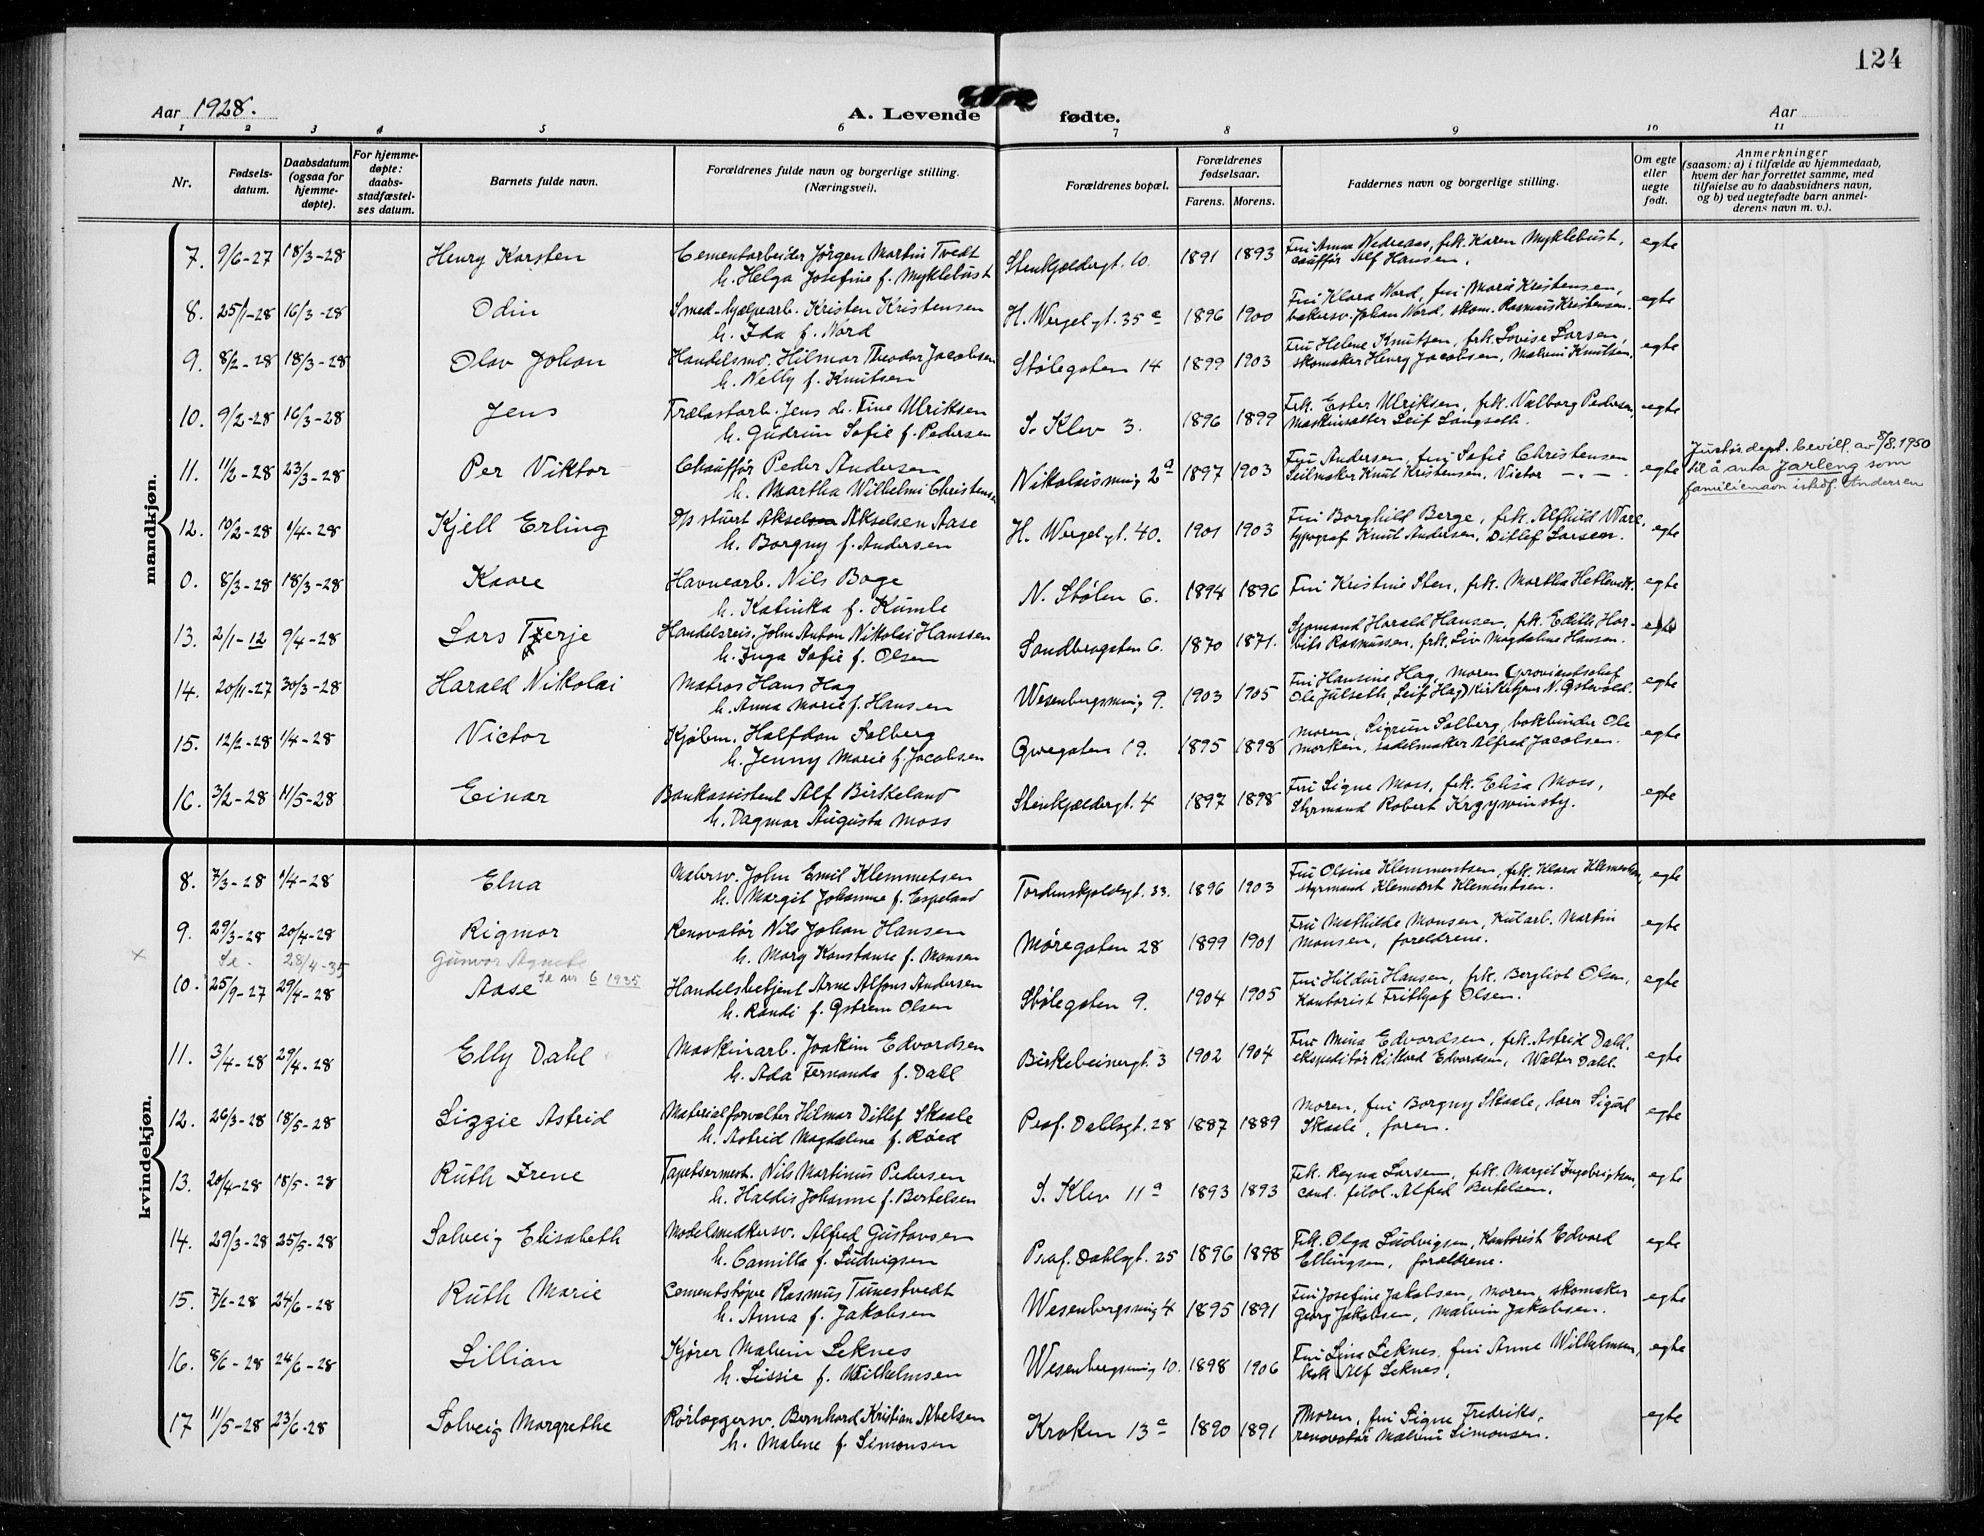 124
Aar 1928.
A. Levende fødte.
Aar
1 2 3 4 5 6 7 8 9 10 11
Nr.
Fødsels-
datum.
Daabsdatum
(ogsaa for
hjemme-
døpte).
For hjemme-
døpte:
daabs-
stadfæstel-
ses datum.
Barnets fulde navn.
Forældrenes fulde navn og borgerlige stilling.
(Næringsvei).
Forældrenes bopæl.
Forældrenes
fødselsaar.
Farens. Morens.
Faddernes navn og borgerlige stilling.
Om egte
eller
uegte
født.
Anmerkninger
(saasom: a) i tilfælde av hjemmedaab,
hvem der har forrettet samme, med
tilføielse av to daabsvidners navn,
og b) ved uegtefødte barn anmel-
derens navn m. v.).
mandkjøn.
7. 9/6-27 18/3-28 Henry Karsten Cementarbeider Jørgen Martin Tvedt Stenkjeldergt. 10. 1891 1893 Fru Anna Nedreaas, frk. Karen Myklebust, egte
h. Helga Josefine f. Myklebust chauffør Alf Hansen.
8. 25/1-28 16/3-28 Odin Smed-hjælpearb. Kristen Kristensen H. Wergel.gt. 35c 1896 1900 Fru Klara Nord, fru Marie Kristensen, egte
h. Ida f. Nord bakersv. Johan Nord, skom. Rasmus Kristensen.
9. 8/2-28 18/3-28 Olav Johan Handelsmd. Hilmar Theodor Jacobsen Stølegaten 14 1899 1903 Fru Helene Knutsen, frk. Lovise Larsen, egte
h. Nelly f. Knutsen skomaker Henry Jacobsen, Malvin Knutsen.
10. 9/2-28 16/3-28 Jens Trælastarb. Jens Fine Ulriksen S. Klev 3. 1896 1899 Frk. Ester Ulriksen, frk. Valborg Pedersen, egte
h. Gudrun Sofie f. Pedersen Maskinsetter Leif Langseth.
11. 11/2-28 23/3-28 Per Viktor Chauffør Peder Andersen Nikolaismug 2a 1897 1903 Fru Andersen, fru Sofie Christensen egte
h. Martha Wilhelmi Christensen Seilmaker Knut Kristensen, Victor -"-
Justisdept. bevill. av 8/8.1950
til å anta Jarleng som
familienavn istdf. Andersen
12. 10/2-28 1/4-28 Kjell Erling stuert Akselsen Aase H. Wergel.gt. 40. 1901 1903 Fru Borghild Berge, frk. Alfhild egte
h. Borgny f. Andersen typograf Knut Andersen, Ditlef Larsen.
0. 8/3-28 18/3-28 Kaare Havnearb. Nils Boge N. Stølen 6. 1894 1896 Fru Kristine Sten, frk. Martha Hetlevik. egte
h. Katinka f. Kumle
13. 2/1-12 9/4-28 Lars Terje Handelsreis. John Anton Nikolai Hanssen Sandbrogaten 6. 1870 1871. Sjømand Harald Hansen, frk. Edith Har- egte
h. Inga Sofie f. Olsen Rasmussen, frk. Liv Magdalene Hansen.
14. 20/11-27 30/3-28 Harald Nikolai Matros Hans Hag Wesenbergsmug 9. 1903 1905 Fru Hansine Hag, moren (proviantschef egte
h. Anna Marie f. Hansen Ole Julseth, Leif Hag) kirketjener N. Østevold.
15. 12/2-28 1/4-28 Victor Kjøbm. Halfdan Solberg Øvregaten 19. 1895 1898 Moren, Sigrun Solberg, bokbinder Ole egte
h. Jenny Marie f. Jacobsen Morken, sadelmaker Alfred Jacobsen.
16. 3/2-28 11/5-28 Einar Bankassistent Alf Birkeland Stenkjeldergt. 4 1897 1898 Fru Signe Moss, frk. Elisa Moss, egte
h. Dagmar Augusta Moss Styrmand Robert Krgywinsty.
kvindekjøn.
8. 7/3-28 1/4-28 Elna Malersv. John Emil Klemmetsen Tordenskjoldsgt. 33. 1896 1903 Fru Olsine Klemmentsen, frk. Klara Klementsen, egte
h. Margit Johanne f. Espeland styrmand Klemet Klementsen.
9. 29/3-28 20/4-28 Rigmor Renovatør Nils Johan Hansen Møregaten 28 1899 1901 Fru Mathilde Monsen, Kularb. Martin egte
h. Mary Konstanse f. Monsen Monsen, foreldrene.
× Se. 28/4-35 Gunvor Agnete Se nr 6 1935
10. 25/9-27 29/4-28 Aase Handelsbetjent Arne Alfons Andersen Stølegaten 9. 1904 1905 Fru Hildur Hansen, frk. Bergliot Olsen, egte
h. Randi f. Østrem Olsen Kontorist Frithjof Olsen.
11. 3/4-28 29/4-28 Elly Dahl Maskinarb. Joakim Edvardsen Birkebeinergt. 3 1902 1904 Fru Mina Edvardsen, frk. Astrid Dahl. egte
h. Ada Fernanda f. Dahl ekspeditør Rikard Edvardsen, Walter Dahl.
12. 26/3-28 18/5-28 Lizzie Astrid Materialforvalter Hilmar Ditlef Skaale Prof. Dahlsgt. 28 1887 1889 Moren, fru Borgny Skaale, lærer Sigurd egte
h. Astrid Magdalene f. Røed Skaale, faren.
13. 20/4-28 18/5-28 Ruth Irene Tapetsermest. Nils Martinus Pedersen S. Klev 11a 1893 1893 Frk. Ragna Larsen, frk. Margit Ingebrigtsen, egte
h. Haldis Johanne f. Bertelsen cand. filol. Alfred Bertelsen.
14. 29/3-28 25/5-28 Solveig Elisabeth Modelsnedkersv. Alfred Gustavsen Prof. Dahlsgt. 25 1896 1898 Frk. Olga Ludvigsen, Kontorist Edvard egte
h. Camilla f. Ludvigsen Ellingsen, forældrene.
15. 7/2-28 24/6-28 Ruth Marie Cementstøper Rasmus Tunestvedt Wesenbergsmug 4 1895 1891 Fru Josefine Jakobsen, moren, skomaker egte
h. Anna f. Jakobsen Georg Jakobsen, Malvin Jakobsen.
16. 8/6-28 24/6-28 Lillian Kjører Malvin Leknes Wesenbergsmug 10. 1898 1906 Fru Lina Leknes, fru Anne Wilhelmsen, egte
h. Lissie f. Wilhelmsen kok Alf Leknes.
17 11/5-28 23/6-28 Solveig Margrethe Rørlæggersv. Bernhard Kristian Abelsen Kroken 13a 1890 1891 Moren, fru Signe Fredriks, egte
h. Malene f. Simonsen renovatør Malvin Simonsen.